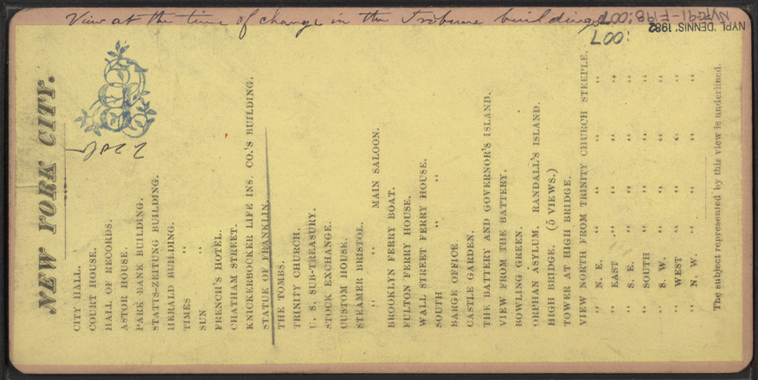 View at the time of change in the Tribune building
NYPL DENNIS 1982
NYPG91-F198:007
:007
NEW YORK CITY.
CITY HALL.
COURT HOUSE.
HALL OF RECORDS.
ASTOR HOUSE.
PARK BANK BUILDING.
STAATS-ZEITUNG BUILDING.
HERALD BUILDING.
TIMES "
SUN "
FRENCH'S HOTEL.
CHATHAM STREET.
KNICKERBOCKER LIFE INS. CO.'S BUILDING.
STATUE OF FRANKLIN.
THE TOMBS.
TRINITY CHURCH.
U. S. SUB-TREASURY.
STOCK EXCHANGE.
CUSTOM HOUSE.
STEAMER BRISTOL.
" " MAIN SALOON.
BROOKLYN FERRY BOAT.
FULTON FERRY HOUSE.
WALL STREET FERRY HOUSE.
SOUTH " "
BARGE OFFICE.
CASTLE GARDEN.
THE BATTERY AND GOVERNOR'S ISLAND.
VIEW FROM THE BATTERY.
BOWLING GREEN.
ORPHAN ASYLUM. RANDALL'S ISLAND.
HIGH BRIDGE. (5 VIEWS.)
TOWER AT HIGH BRIDGE.
VIEW NORTH FROM TRINITY CHURCH STEEPLE.
" N. E. " " " "
" EAST " " " "
" S. E. " " " "
" SOUTH " " " "
" S. W. " " " "
" WEST " " " "
" N. W. " " " "
The subject represented by this view is underlined.